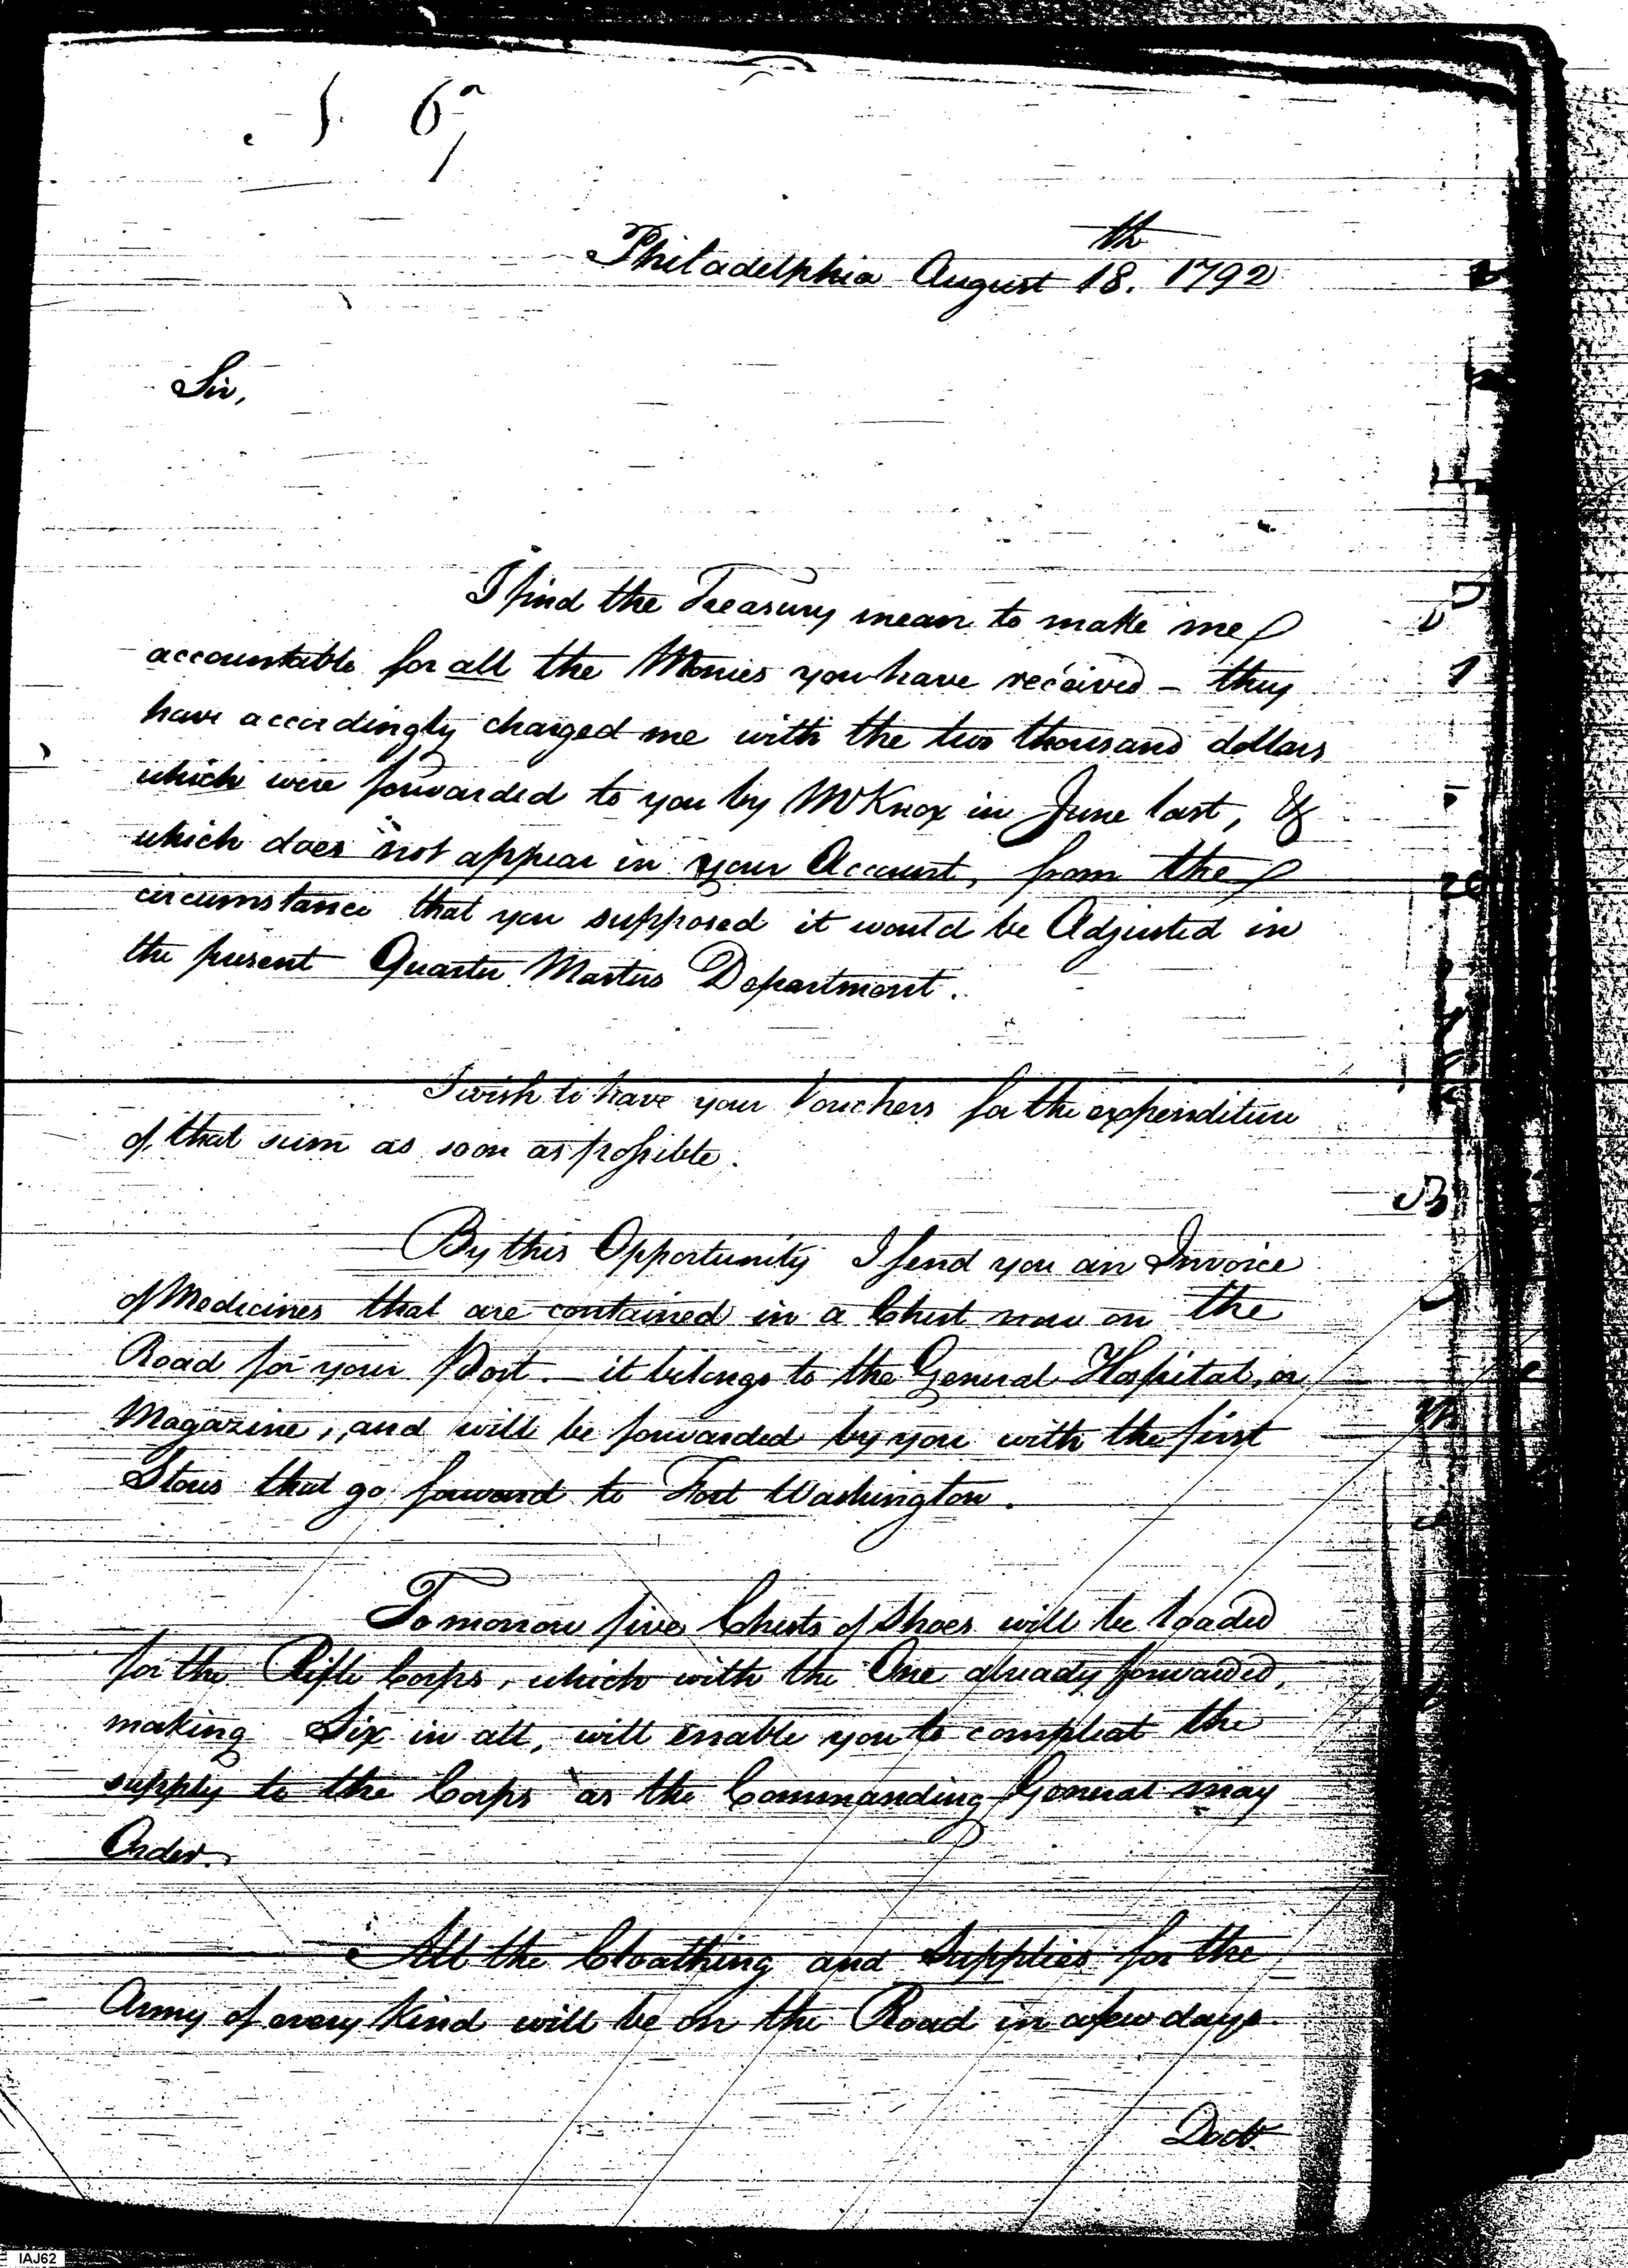 Philadelphia August 18.th 1792
Sir,
I find the Treasury mean to make me
accountable for all the Monies you have received – they
have accordingly charged me with the two thousand dollars
which were forwarded to you by Mr Knox in June last, &
which does not appear in your Account, from the
circumstance that you supposed it would be Adjusted in
the present Quarter Masters Department.
I wish to have your Vouchers for the expenditure
of that sum as soon as possible.
By this Opportunity I send you an Invoice
of Medicines that are contained in a Chest now on the
Road for your Post. – it belongs to the General Hospital, or
Magazine, and will be forwarded by you with the first
Stores that go forward to Fort Washington.
Tomorrow five Chests of Shoes will be loaded
for the Rifle Corps, which with the One already forwarded,
making Six in all, will enable you to compleat the
supply to the Corps as the Commanding General may
Order.
All the Cloathing and Supplies for the
Army of every Kind will be on the Road in a few days.
Doctr.
IAJ62